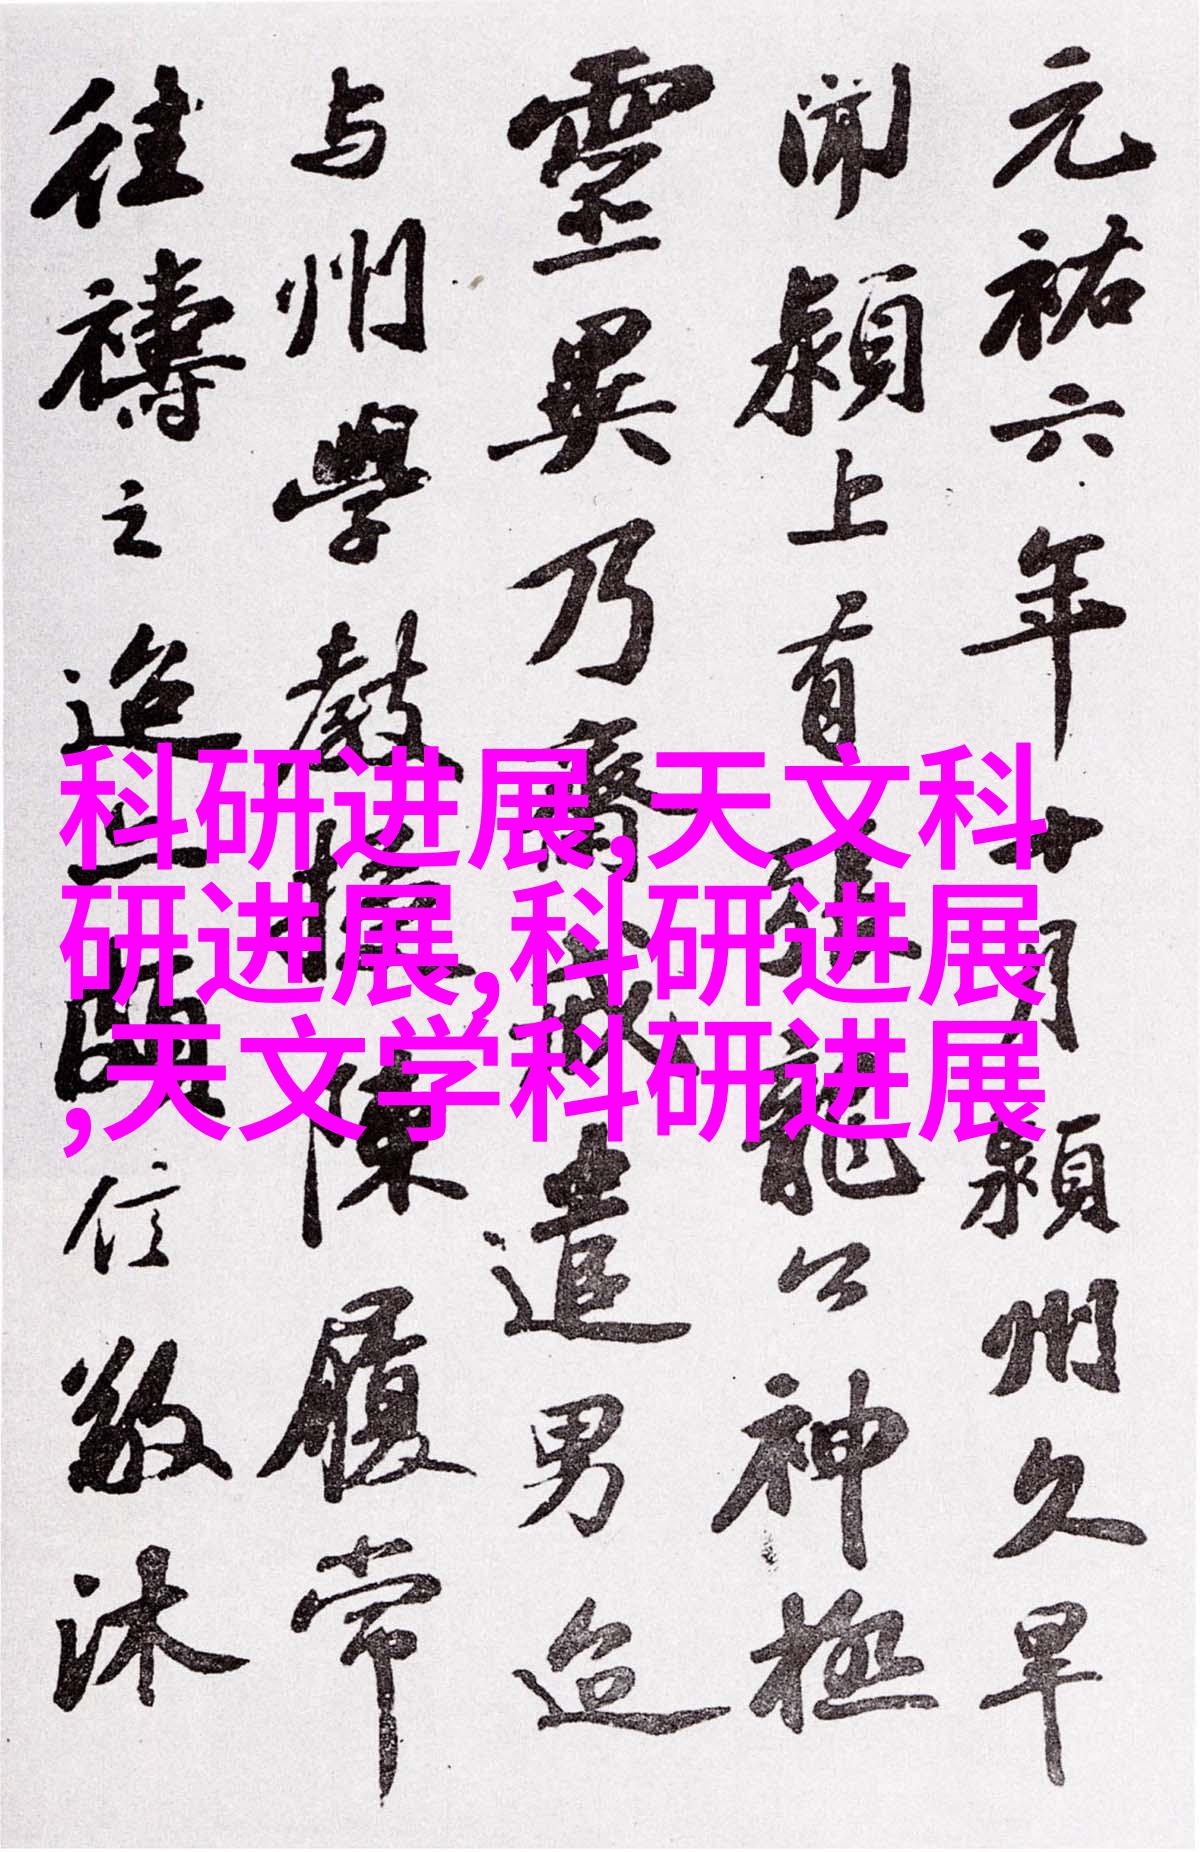 元祐六年十月潁州久旱
聞潁上有張龍公神極
靈異乃齋戒遣男迨
与州學教授陳履常
往禱之迨亦頗信敬沐
科研进展,天文科
研进展,科研进展
,天文学科研进展